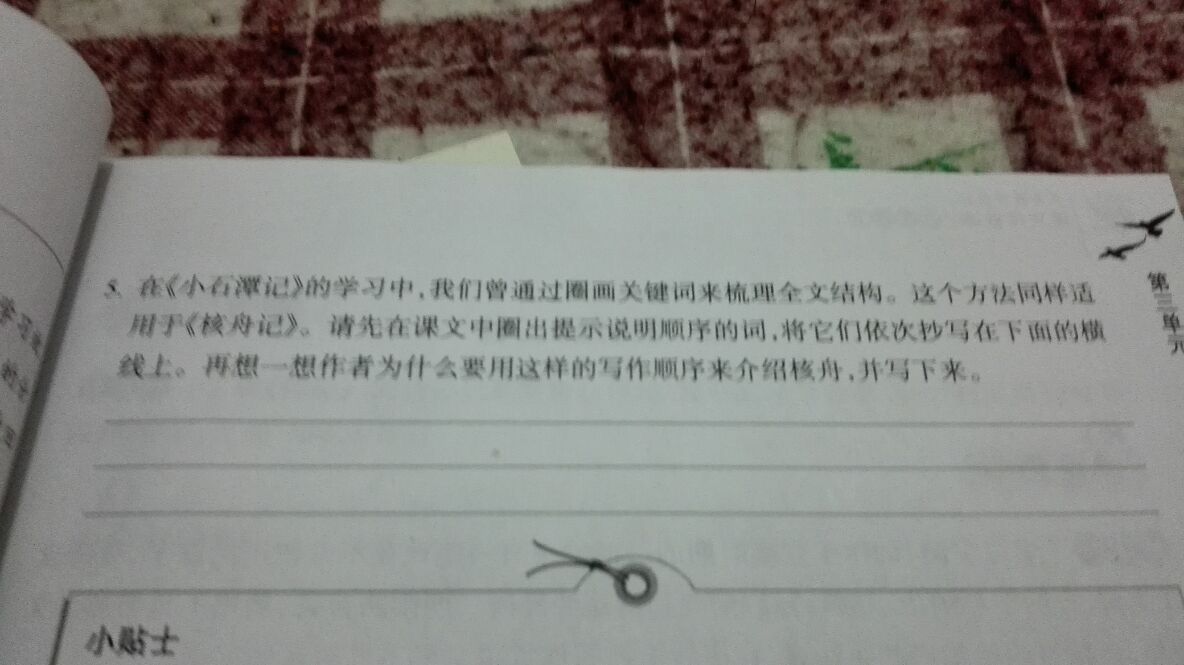 5. 在《小石潭记》的学习中,我们曾通过圈画关键词来梳理全文结构。这个方法同样适
用于《核舟记》。请先在课文中圈出提示说明顺序的词,将它们依次抄写在下面的横
线上。再想一想作者为什么要用这样的写作顺序来介绍核舟,并写下来。
第三单元
小贴士
学习